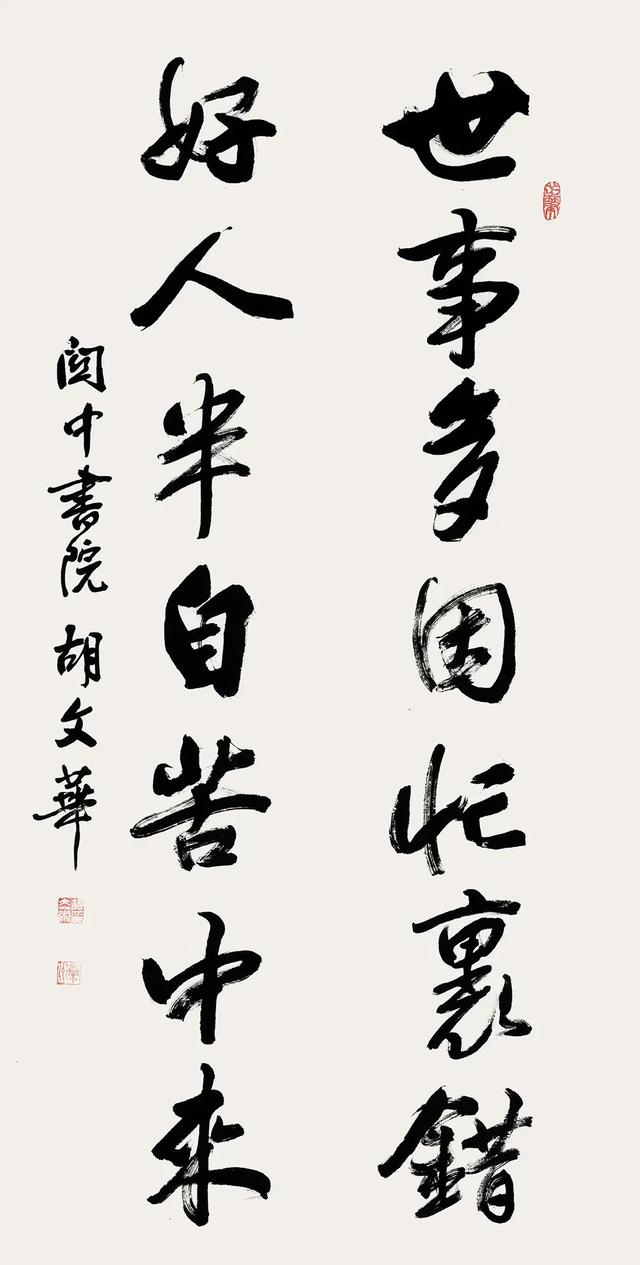 世事多因忙裏錯
好人半自苦中來
閎中書院 胡文華